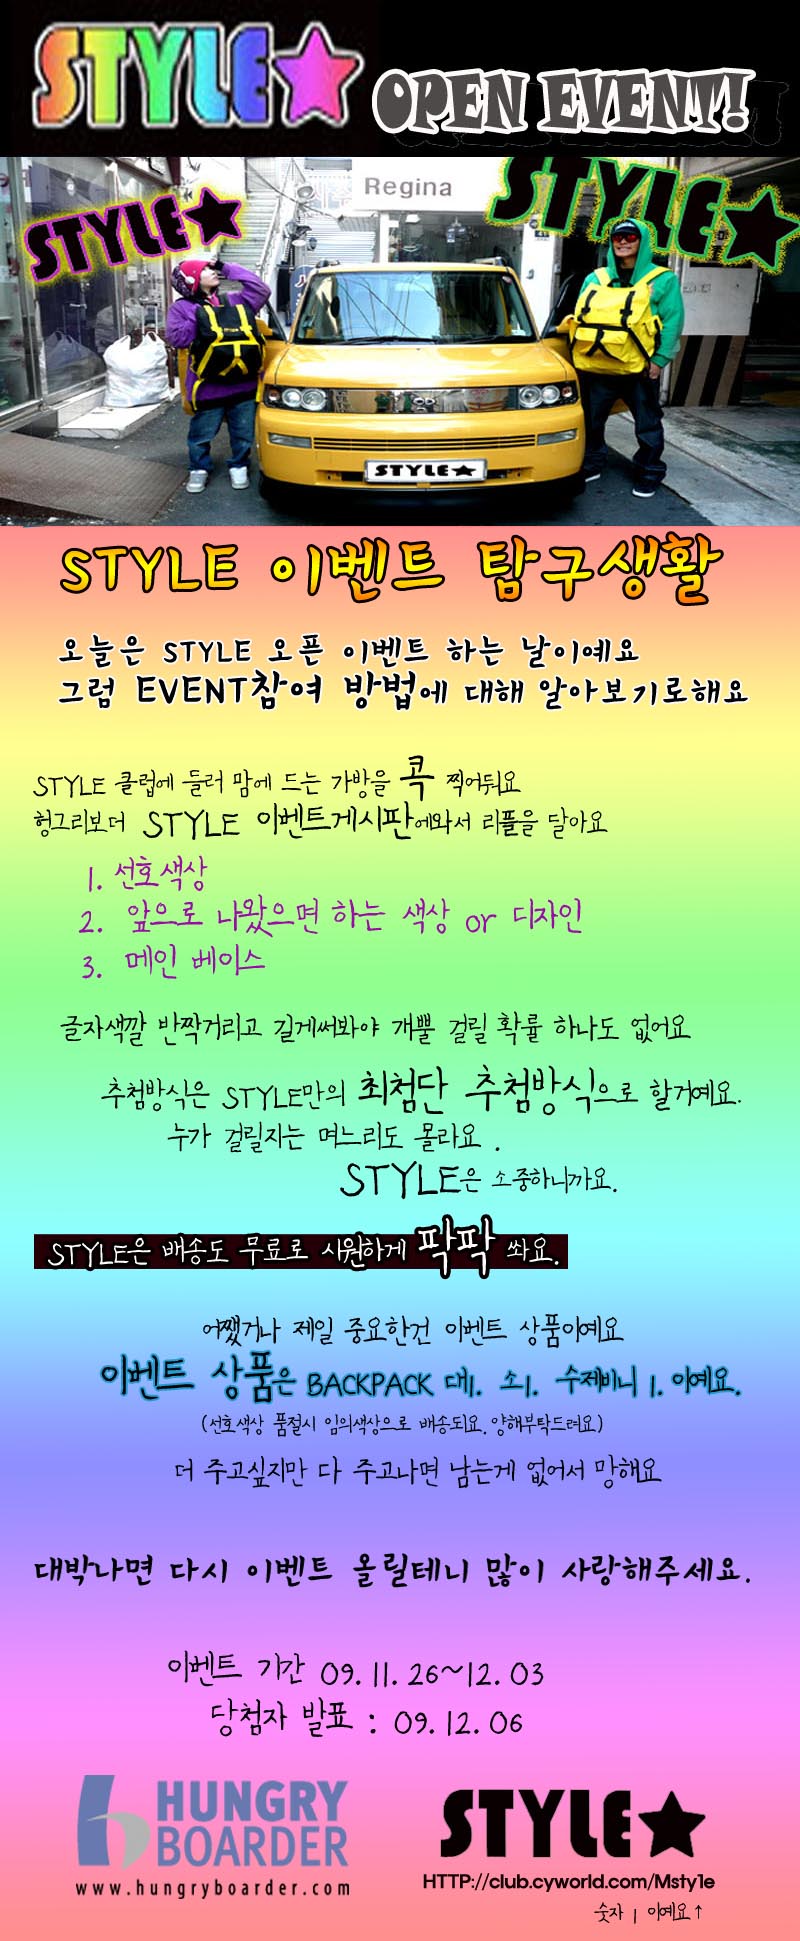 STYLE★
OPEN EVENT!
STYLE★
Regina
STYLE★
STYLE★
STYLE 이벤트 탐구생활
오늘은 STYLE 오픈 이벤트 하는 날이예요
그럼 EVENT참여 방법에 대해 알아보기로해요
STYLE 클럽에 들러 맘에 드는 가방을 콕 찍어둬요
헝그리보더 STYLE 이벤트게시판에와서 리플을 달아요
1. 선호색상
2. 앞으로 나왔으면 하는 색상 or 디자인
3. 메인 베이스
글자색깔 반짝거리고 길게써봐야 개뿔 걸릴 확률 하나도 없어요
추첨방식은 STYLE만의 최첨단 추첨방식으로 할거예요.
누가 걸릴지는 며느리도 몰라요.
STYLE은 소중하니까요.
STYLE은 배송도 무료로 시원하게 팍팍 쏴요.
어쨌거나 제일 중요한건 이벤트 상품이예요
이벤트 상품은 BACKPACK 대1. 소1. 수제비니 1. 이예요.
(선호색상 품절시 임의색상으로 배송되요. 양해부탁드려요)
더 주고싶지만 다 주고나면 남는게 없어서 망해요
대박나면 다시 이벤트 올릴테니 많이 사랑해주세요.
이벤트 기간 09. 11. 26~12. 03
당첨자 발표 : 09. 12. 06
HUNGRY
BOARDER
www.hungryboarder.com
STYLE★
HTTP://club.cyworld.com/Msty1e
숫자 1 이예요↑